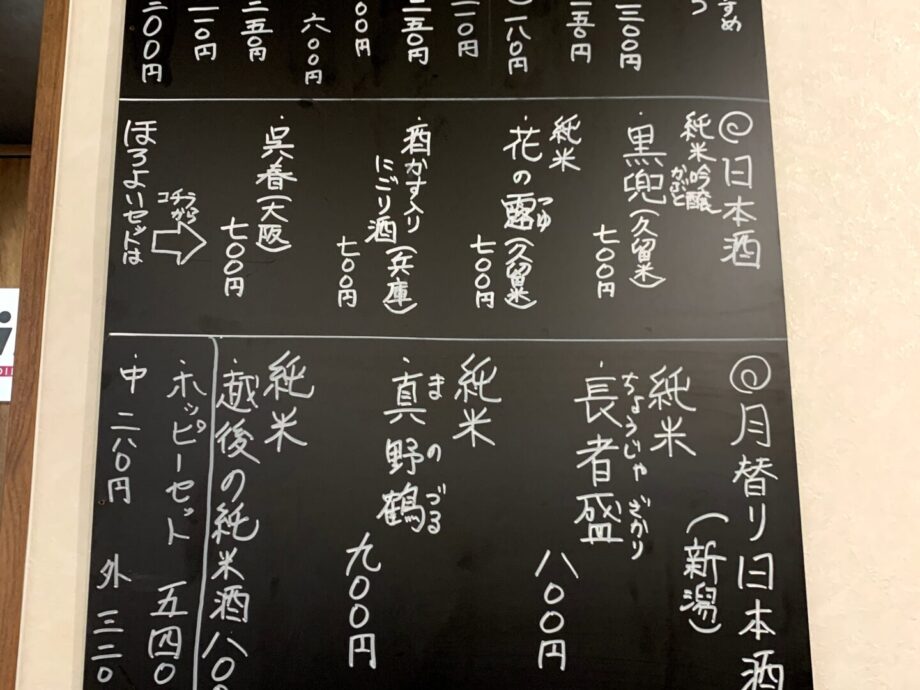 すめ
つ
三〇〇円
五〇円
一八〇円
一〇円
五〇円
〇〇円
六〇〇円
五〇円
一〇円
〇〇円
日本酒
純米吟醸
・黒兜(久留米)
かぶと
七〇〇円
純米
・花の露(久留米)
つゆ
七〇〇円
・酒かす入り
にごり酒(兵庫)
七〇〇円
・呉春(大阪)
七〇〇円
コチラ
から
ほろよいセットは
月替り日本酒
(新潟)
純米
・長者盛
ちょうじゃざかり
八〇〇円
純米
・真野鶴
まのづる
九〇〇円
純米
・越後の純米酒八〇
・ホッピーセット 五四〇
中 二八〇円 外 三二〇